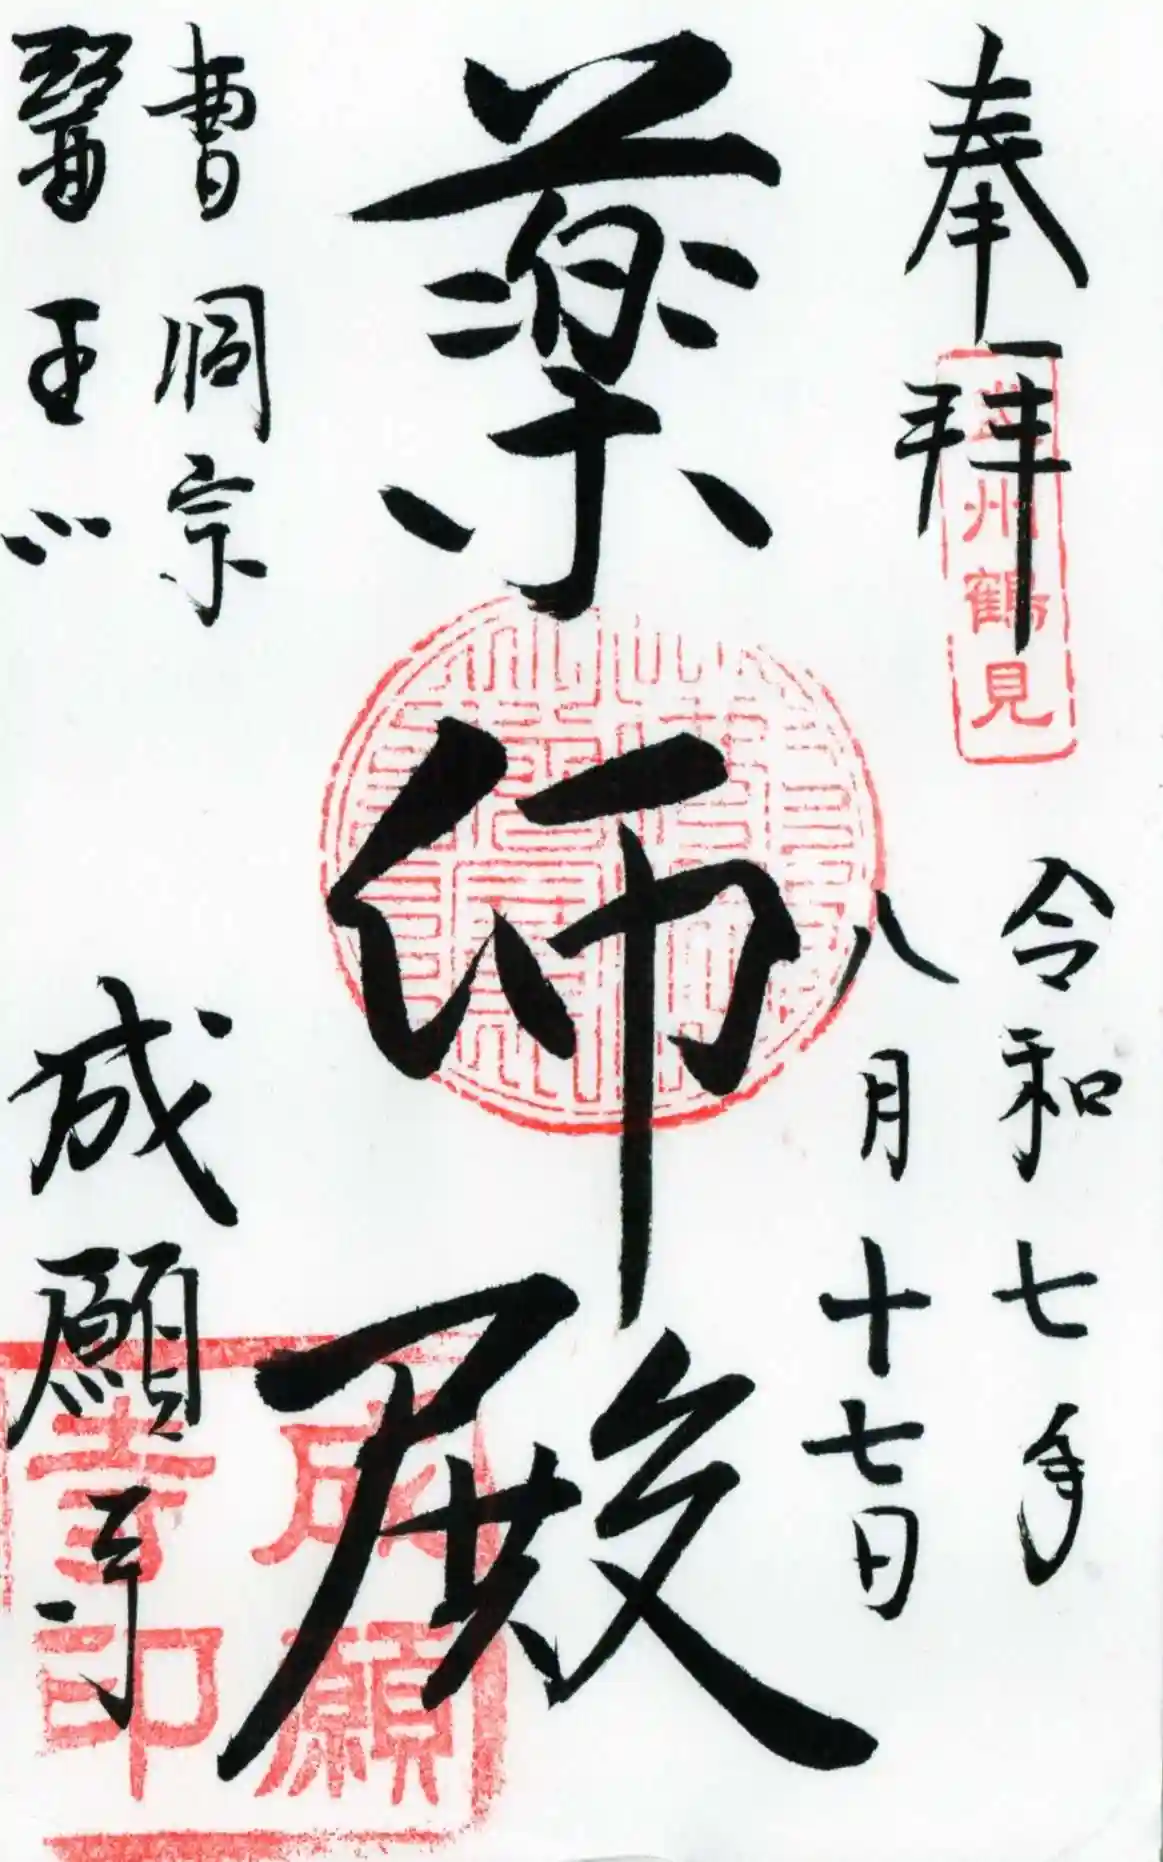 奉拝
州鶴見
令和七年
八月十七日
薬師殿
曹洞宗
醫王山
成願寺
成願寺印